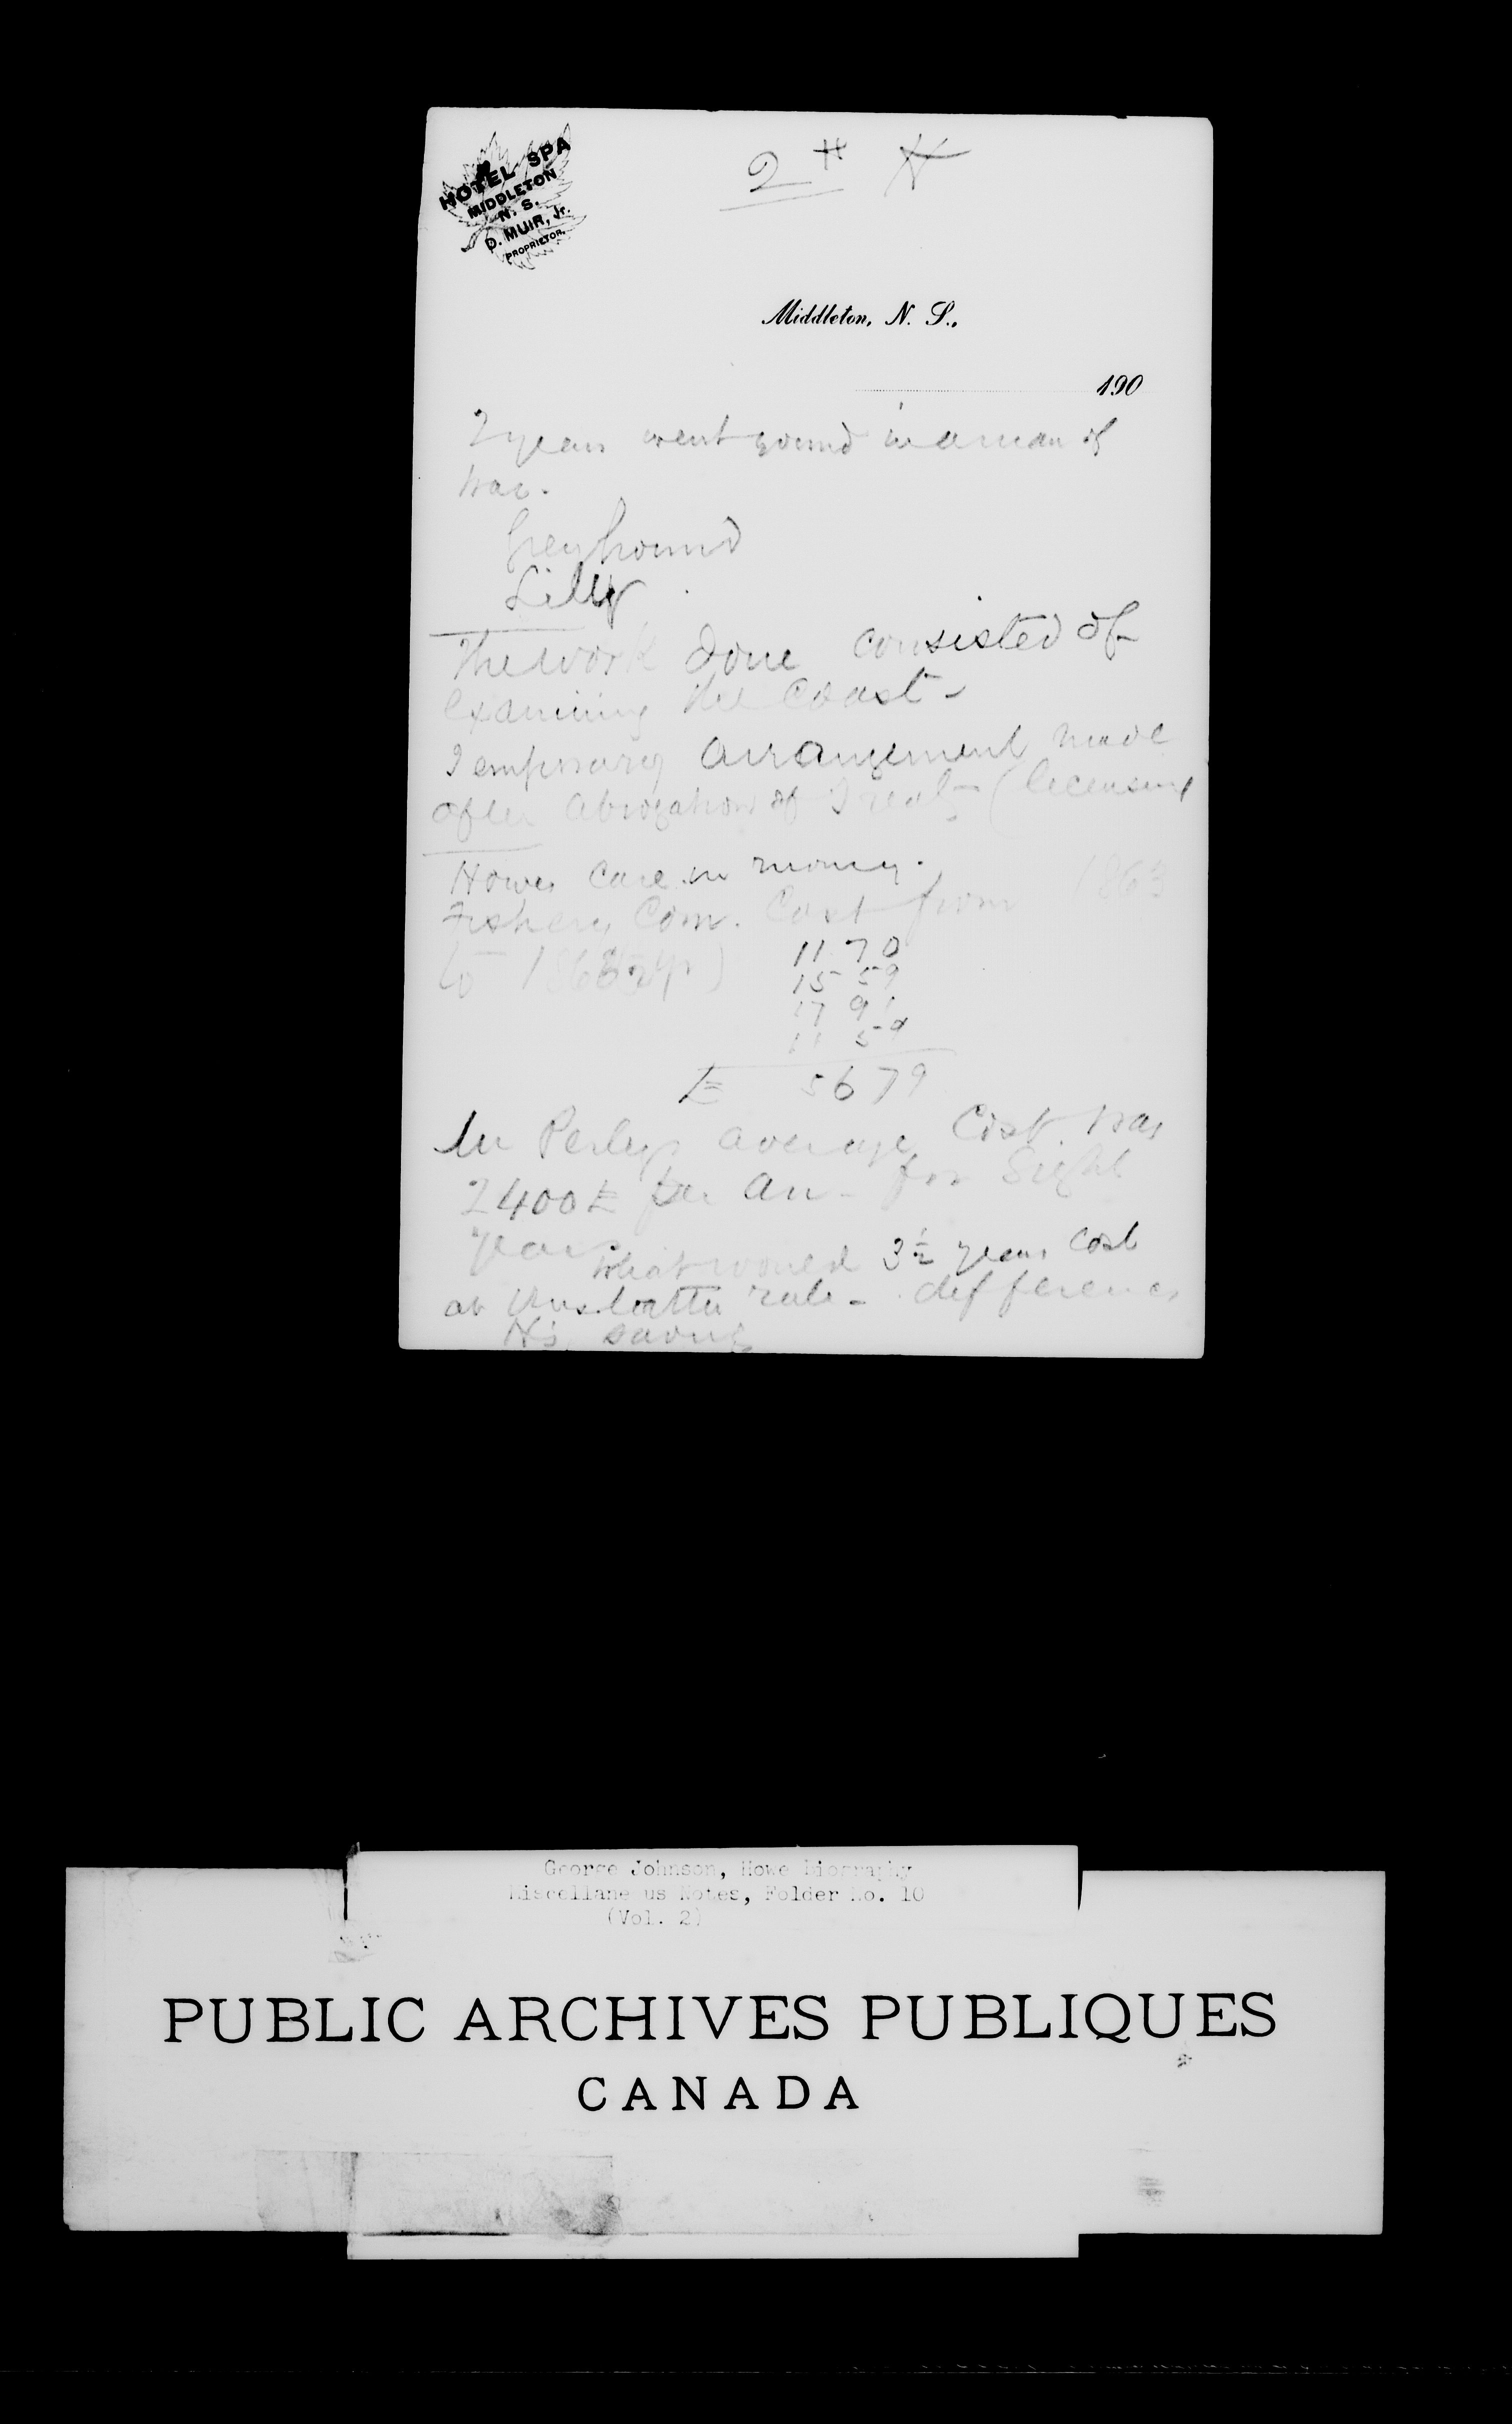 HOTEL SPA
MIDDLETON
N. S.
D. MUIR, Jr.
PROPRIETOR.
2
Middleton, N. S.,
190
2 years went round in a man of
war.
Greyhound
Lilly
The work done consisted of
examining the Coast -
Temporary arrangement made
after abrogation of Treaty (licensing
Howes Care in money.
Fishery Com. Cost from 1863
to 186
11 70
15 59
17 91
11 59
£ 5679
In Perleys average Cost was
2400£ per an - for Eight
years
What would 3½ years Cost
at rate - difference
His saving
George Johnson, Howe Biography
Miscellaneous Notes, Folder No. 10
(Vol. 2)
PUBLIC ARCHIVES PUBLIQUES
CANADA